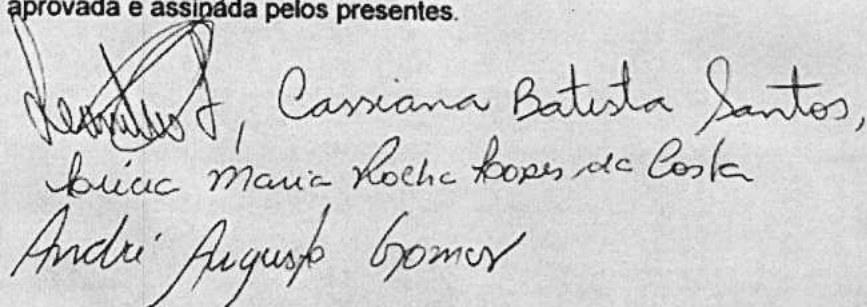 aprovada e assinada pelos presentes.
, Cassiana Batista Santos,
Lúcia Maria Rocha Lopes da Costa
André Augusto Gomes